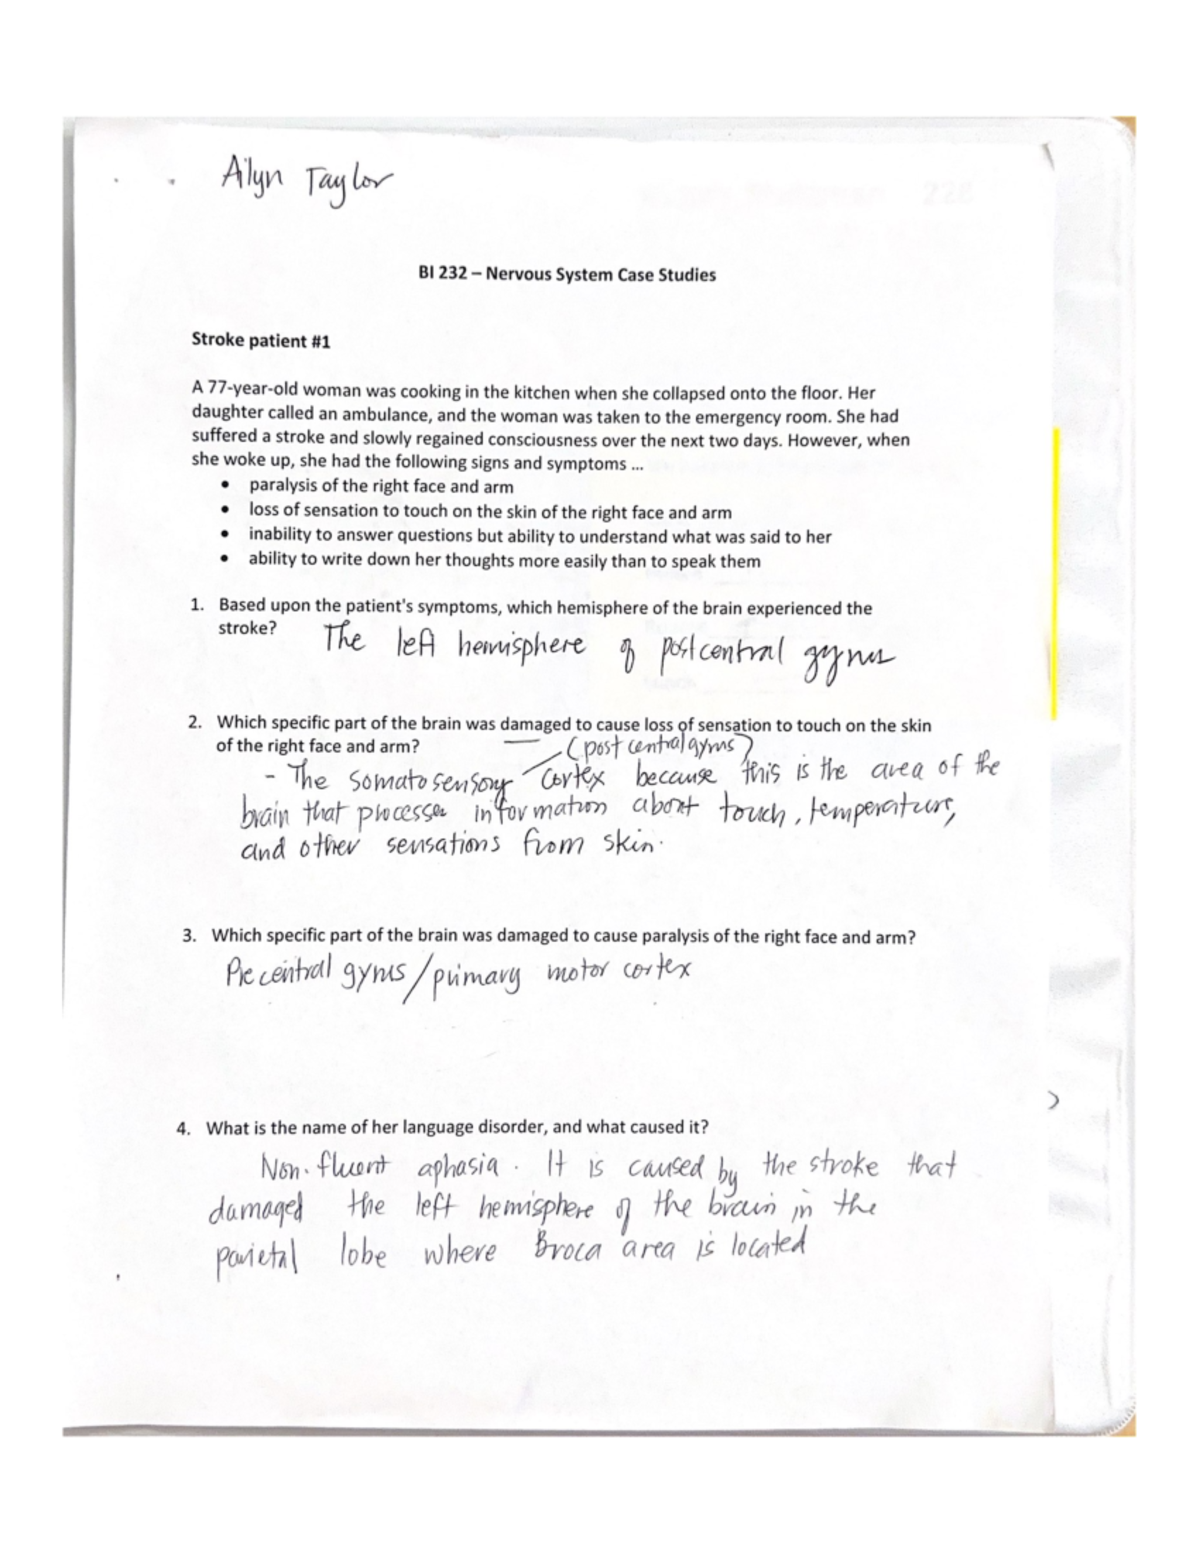 Ailyn Taylor
BI 232 – Nervous System Case Studies
Stroke patient #1
A 77-year-old woman was cooking in the kitchen when she collapsed onto the floor. Her
daughter called an ambulance, and the woman was taken to the emergency room. She had
suffered a stroke and slowly regained consciousness over the next two days. However, when
she woke up, she had the following signs and symptoms ...
• paralysis of the right face and arm
• loss of sensation to touch on the skin of the right face and arm
• inability to answer questions but ability to understand what was said to her
• ability to write down her thoughts more easily than to speak them
1. Based upon the patient's symptoms, which hemisphere of the brain experienced the
stroke?
The left hemisphere of postcentral gyrus
2. Which specific part of the brain was damaged to cause loss of sensation to touch on the skin
of the right face and arm?
(post central gyrus)
- The somatosensory cortex because this is the area of the
brain that processes information about touch, temperature,
and other sensations from skin.
3. Which specific part of the brain was damaged to cause paralysis of the right face and arm?
Precentral gyrus/primary motor cortex
4. What is the name of her language disorder, and what caused it?
Non-fluent aphasia. It is caused by the stroke that
damaged the left hemisphere of the brain in the
parietal lobe where Broca area is located